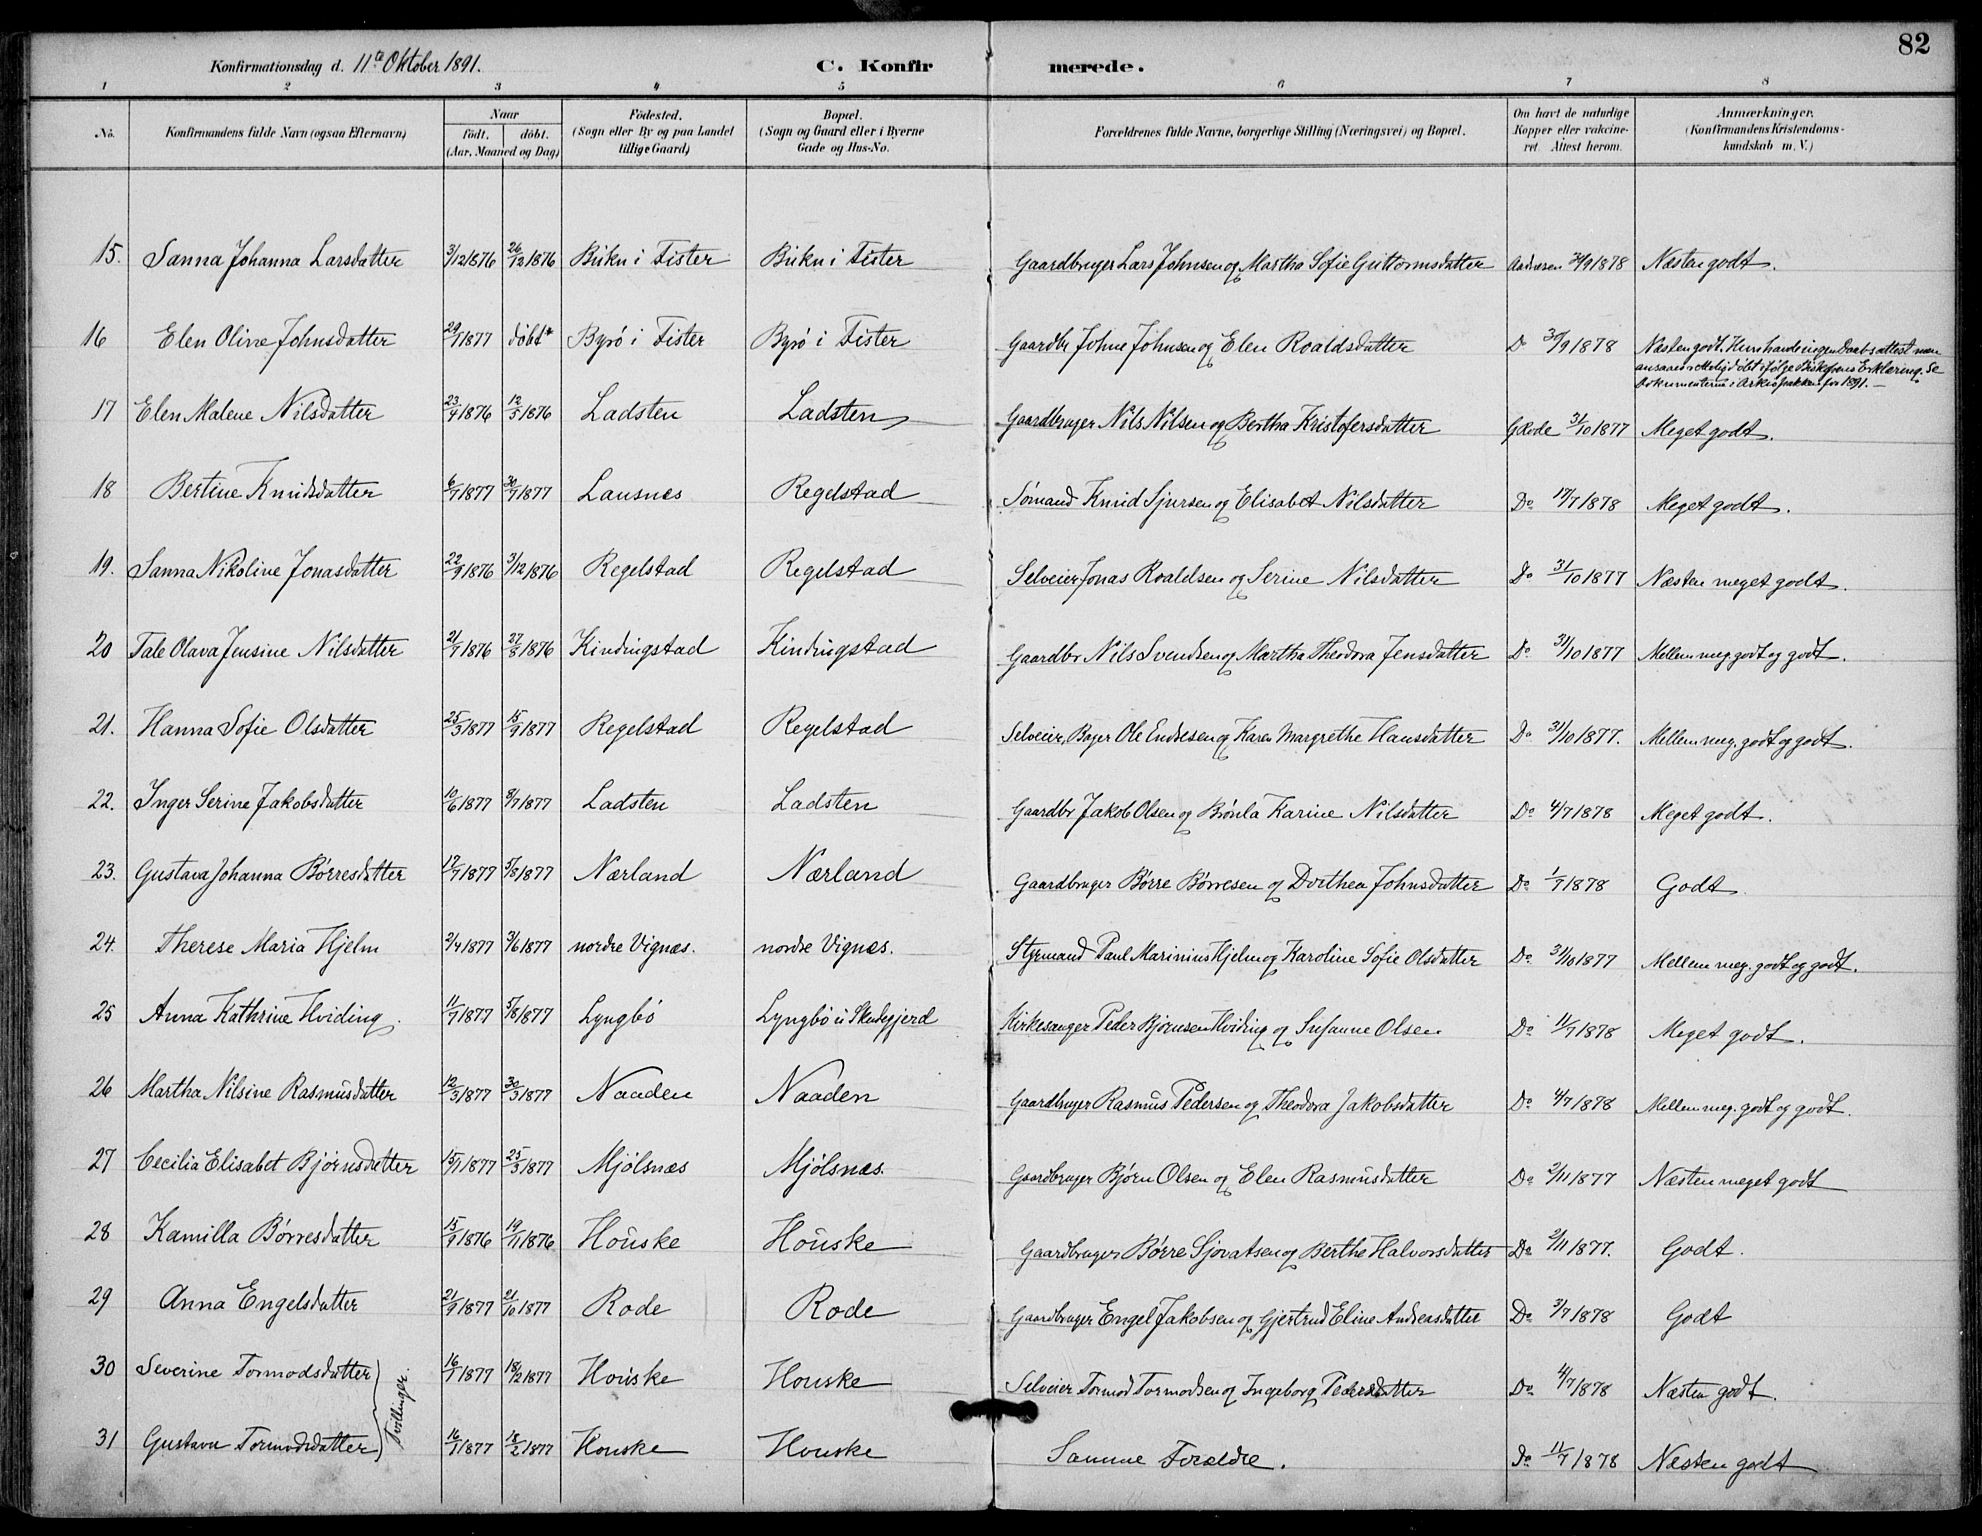 82
Konfirmationsdag d. 11te Oktober 1891.
C. Konfirmerede.
1 2 3 4 5 6 7 8
No. Konfirmandens fulde Navn (ogsaa Efternavn) Naar født. døbt. (Aar, Maaned og Dag) Fødested. (Sogn eller By og paa Landet tillige Gaard) Bopæl. (Sogn og Gaard eller i Byerne Gade og Hus-No. Forældrenes fulde Navne, borgerlige Stilling (Næringsvei) og Bopæl. Om havt de naturlige Kopper eller vakcineret. Attest herom. Anmærkninger. (Konfirmandens Kristendomskundskab m. V.)
15. Sanna Johanna Larsdatter 3/12 1876 26/12 1876 Birkn i Fister Birkn i Fister Gaardbruger Lars Johnsen og Martha Sofie Guttormsdatter 24/9 1878 Næsten godt.
16 Elen Oline Johnsdatter 29/1 1877 døbt* Byrø i Fister Byrø i Fister Gaardbr Johne Johnsen og Elen Roaldsdatter Do 30/9 1878 Næsten godt. Hun havde ingen Daabsattest men
ansaaes rettelig døbt ifølge Biskopens Erklæring. Se
Dokumenterne i Arkivpakken for 1891.—
17 Elen Malene Nilsdatter 23/4 1876 12/5 1876 Ladsten Ladsten Gaardbruger Nils Nilsen og Bertha Kristofersdatter G Rode 31/10 1877 Meget godt.
18 Bertine Knudsdatter 6/7 1877 30/7 1877 Lausnes Regelstad Sømand Knud Sjursen og Elisabet Nilsdatter Do 17/7 1878 Meget godt.
19. Sanna Nikoline Jonasdatter 22/9 1876 31/12 1876 Regelstad Regelstad Selveier Jonas Roaldsen og Serine Nilsdatter Do 31/10 1877 Næsten meget godt.
20 Tale Olava Jensine Nilsdatter 21/7 1876 27/8 1876 Kindingstad Kindingstad Gaardbr Nils Svendsen og Martha Theodora Jensdatter Do 31/10 1877 Mellem meg. godt og godt.
21. Hanna Sofie Olsdatter 25/3 1877 15/9 1877 Regelstad Regelstad Selveier, Bager Ole Endresen og Karen Margrethe Hansdatter Do 31/10 1877. Mellem meg. godt og godt.
22. Inger Serine Jakobsdatter 10/6 1877 8/7 1877 Ladsten Ladsten Gaardbr Jakob Olsen og Brønla Karine Nilsdatter Do 4/7 1878 Meget godt.
23. Gustava Johanna Børresdatter 17/7 1877 5/8 1877 Nærland Nærland Gaardbruger Børre Børresen og Dorthea Johnsdatter Do 1/7 1878 Godt.
24. Therese Maria Hjelm 2/4 1877 3/6 1877 nordre Vignæs. nordre Vignæs. Styrmand Paul Marinius Hjelm og Karoline Sofie Olsdatter Do 31/10 1877 Mellem meg. godt og godt.
25 Anna Kathrine Hviding. 11/7 1877 5/8 1877 Lyngbø Lyngbø i Kirkesanger Peder Bjørnsen Hviding og Susanne Olsen Do 11/7 1878 Meget godt.
26 Martha Nilsine Rasmusdatter 12/3 1877 30/3 1877 Naaden Naaden Gaardbruger Rasmus Pedersen og Theodora Jakobsdatter Do 4/7 1878 Mellem meg. godt og godt.
27 Cecilia Elisabet Bjørnsdatter 15/1 1877 25/3 1877 Mjølsnæs Mjølsnæs. Gaardbruger Bjørn Olsen og Elen Rasmusdatter Do 2/11 1877 Næsten meget godt
28 Kamilla Børresdatter 15/9 1876 19/11 1876 Houske Houske Gaardbruger Børre Sjovatsen og Berthe Halvorsdatter Do 2/11 1877. Godt.
29 Anna Engelsdatter 21/9 1877 21/10 1877 Rode Rode Gaardbruger Engel Jakobsen og Gjertrud Eline Andreasdatter Do 3/7 1878 Godt
30 Severine Tormodsdatter 16/1 1877 18/2 1877 Houske Houske Selveier Tormod Tormodsen og Ingeborg Pedersdatter Do 4/7 1878 Næsten godt.
Tvillinger.
31 Gustava Tormodsdatter 16/1 1877 18/2 1877 Houske Houske Samme Forældre. Do 11/7 1878 Næsten godt